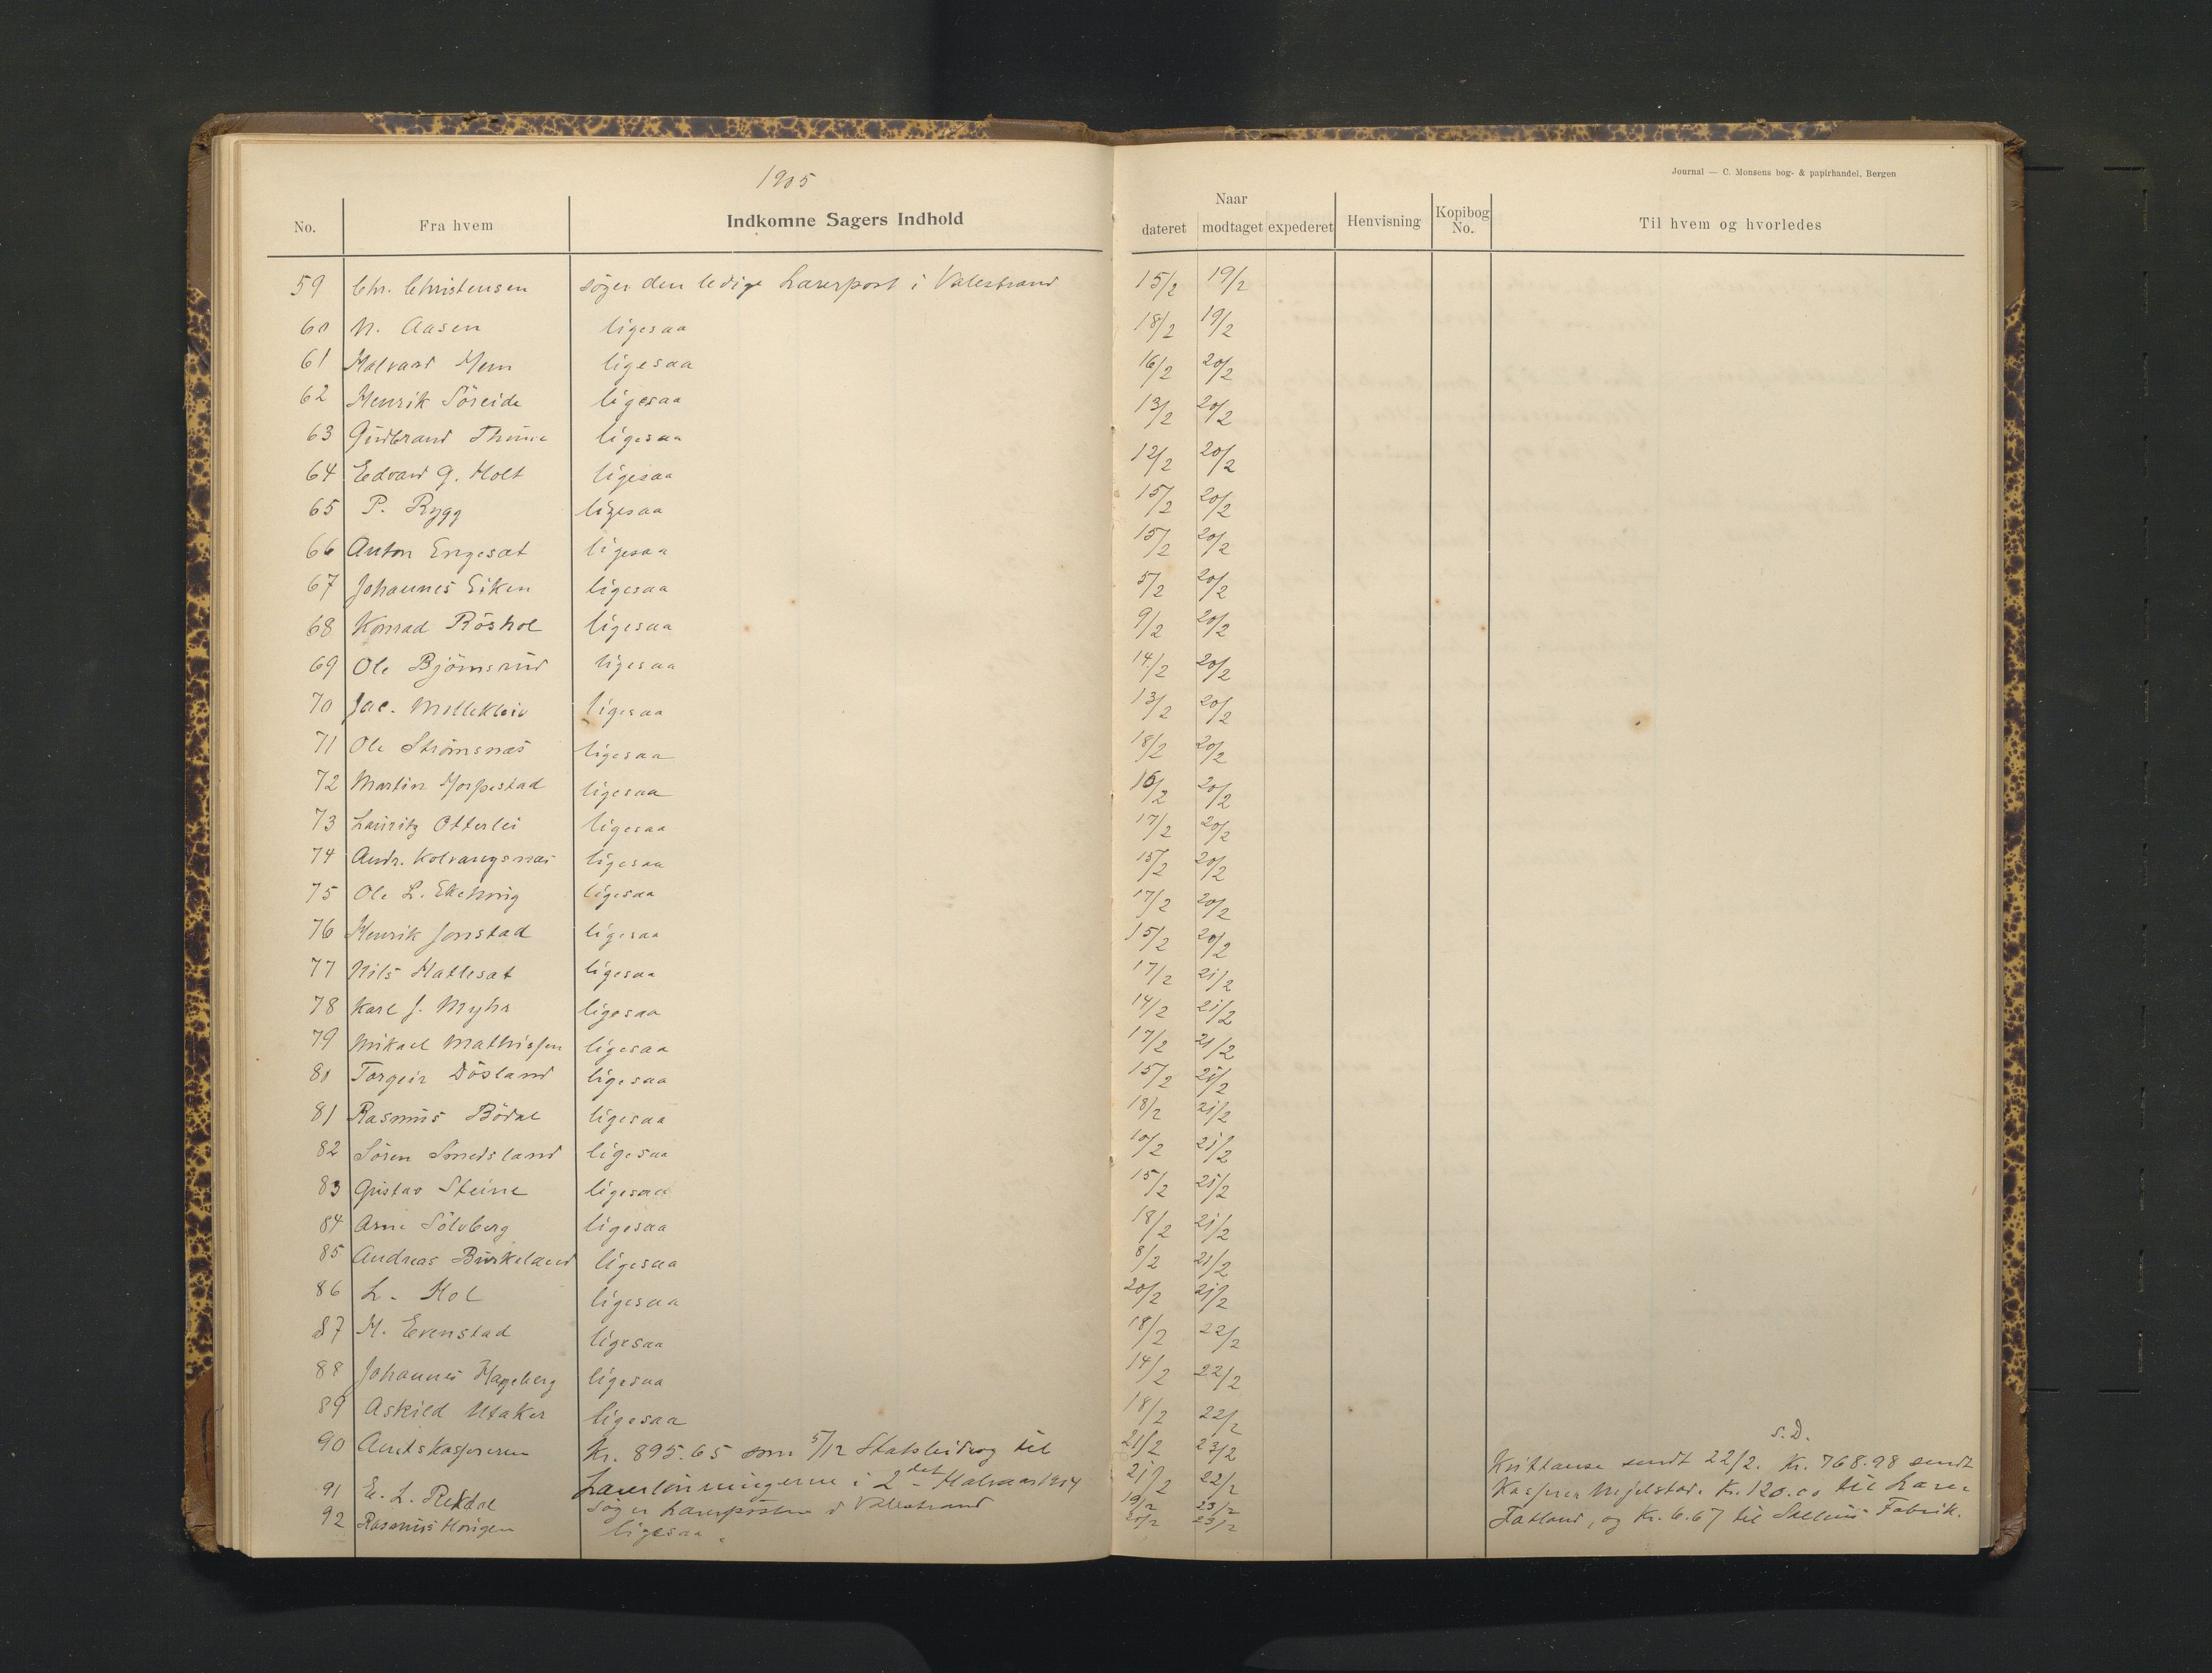 1905
Journal — C. Monsens bog- & papirhandel, Bergen
No. Fra hvem Indkomne Sagers Indhold Naar dateret modtaget expederet Henvisning Kopibog No. Til hvem og hvorledes
59 Chr. Christensen søger den ledige Lærerpost i Valestrand 15/2 19/2
60 N. Aasen ligesaa 18/2 19/2
61 Halvard Hem ligesaa 16/2 20/2
62 Henrik Söreide ligesaa 13/2 20/2
63 Gudbrand Thune ligesaa
64 Edvard G. Holt ligesaa 12/2 20/2
65 P. Rygg ligesaa 15/2 20/2
66 Anton Engesæt ligesaa 15/2 20/2
67 Johannes Eiken ligesaa 5/2 20/2
68 Konrad Röshol ligesaa 9/2 20/2
69 Ole Björnsrud ligesaa 14/2 20/2
70 Jac. Mollekleiv ligesaa 13/2 20/2
71 Ole Strömsnæs ligesaa 18/2 20/2
72 Martin Horpestad ligesaa 16/2 20/2
73 Lauritz Otterlei ligesaa 17/2 20/2
74 Andr. Kolvangsnæs ligesaa 15/2 20/2
75 Ole L. ligesaa 17/2 20/2
76 Henrik Jonstad ligesaa 15/2 20/2
77 Nils Hatlesæt ligesaa 17/2 21/2
78 Karl J. Myhr ligesaa 14/2 21/2
79 Mikael Mathissen ligesaa 17/2 21/2
80 Torgeir Dösland ligesaa 15/2 21/2
81 Rasmus Bödal ligesaa 18/2 21/2
82 Sören Smedsland ligesaa 10/2 21/2
83 Gustav Steine ligesaa 15/2 21/2
84 Arne Sölvberg ligesaa 18/2 21/2
85 Andreas Birkeland ligesaa 8/2 21/2
86 L. Hol ligesaa 20/2 21/2
87 H. Evenstad ligesaa 18/2 22/2
88 Johannes Hageberg ligesaa 14/2 22/2
89 Askild Utaker ligesaa 18/2 22/2
s.D.
90 Amtskassereren Kr. 895.65 som 5/12 Statsbidrag til 21/2 23/2 Kvittanse sendt 22/2. Kr. 768.98 sendt
Lærerlönningerne i 2det Halvaar 1904 21/2 22/2 Kasserer Mejelstad. Kr. 120.00 til Lærer
91 E. L. Rekdal søger Lærerposten i Valestrand 19/2 23/2
92 Rasmus Horigen ligesaa. 20/2 23/2 Fatland, og Kr. 6.67 til Fabrik.